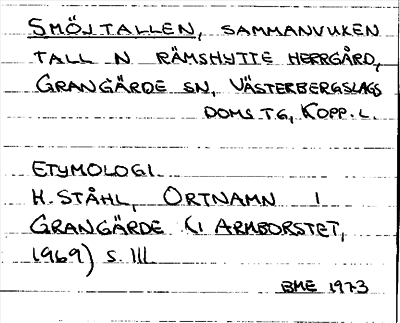 SMÖJTALLEN, SAMMANVUXEN
TALL N RÄMSHYTTE HERRGÅRD,
GRANGÄRDE SN, VÄSTERBERGSLAGS
DOMS.TG, KOPP. L.
ETYMOLOGI
H. STÅHL, ORTNAMN I
GRANGÄRDE (I ARMBORSTET,
1969) S. 111
BME 1973